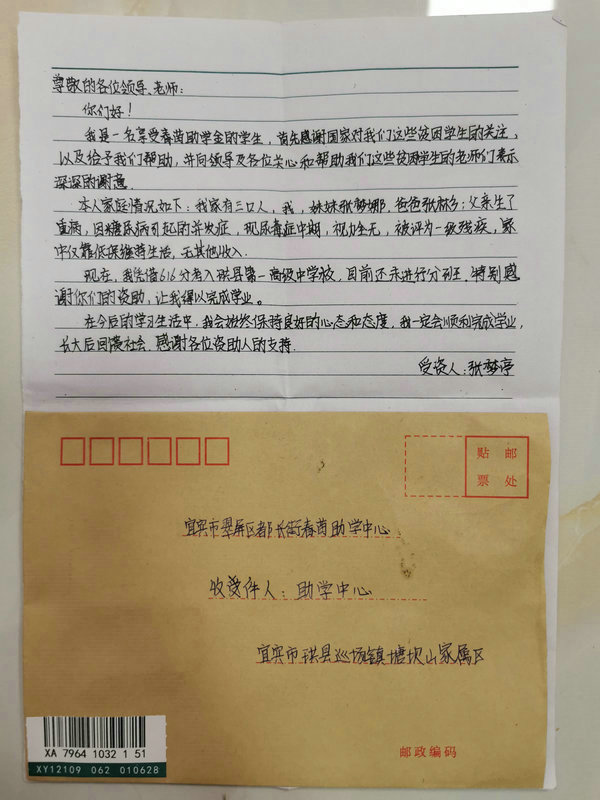 尊敬的各位领导、老师:
你们好!
我是一名享受春苗助学金的学生,首先感谢国家对我们这些贫困学生的关注,
以及给予我们帮助,并向领导及各位关心和帮助我们这些贫困学生的老师们表示
深深的谢意.
本人家庭情况如下:我家有三口人,我,妹妹张梦娜,爸爸张林多;父亲生了
重病,因糖尿病引起的并发症,现尿毒症中期,视力全无,被评为一级残疾,家
中仅靠低保维持生活,无其他收入.
现在,我凭借616分考入珙县第一高级中学校,目前还未进行分班.特别感
谢你们的资助,让我得以完成学业。
在今后的学习生活中,我会始终保持良好的心态和态度,我一定会顺利完成学业,
长大后回馈社会.感谢各位资助人的支持.
受资人:张梦婷
贴 邮
票 处
宜宾市翠屏区都长街春苗助学中心
收受件人:助学中心
宜宾市珙县巡场镇塘坝山家属区
XA 7964 1032 1 51
XY12109 062 010628
邮政编码